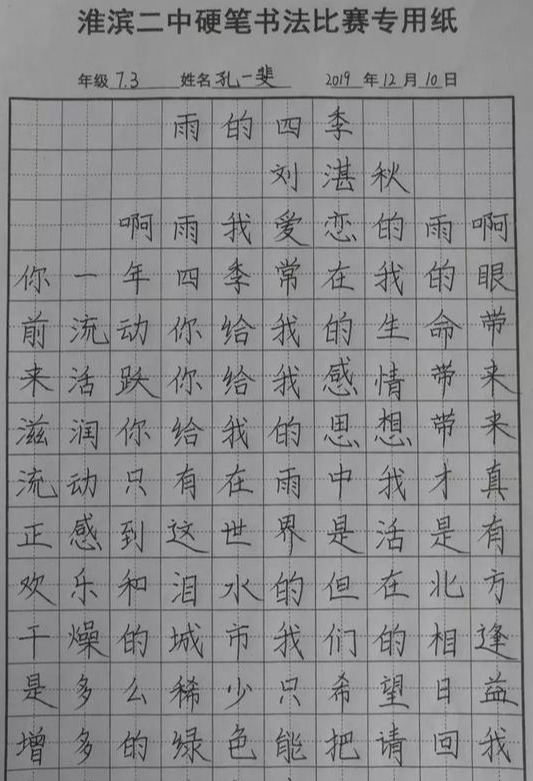 淮滨二中硬笔书法比赛专用纸
年级 7.3 姓名 孔一斐 2019 年 12 月 10 日
雨的四季
刘湛秋
啊雨我爱恋的雨啊
你一年四季常在我的眼
前流动你给我的生命带
来活跃你给我感情带来
滋润你给我的思想带来
流动只有在雨中我才真
正感到这世界是活是有
欢乐和泪水的但在北方
干燥的城市我们的相逢
是多么稀少只希望日益
增多的绿色能把请回我